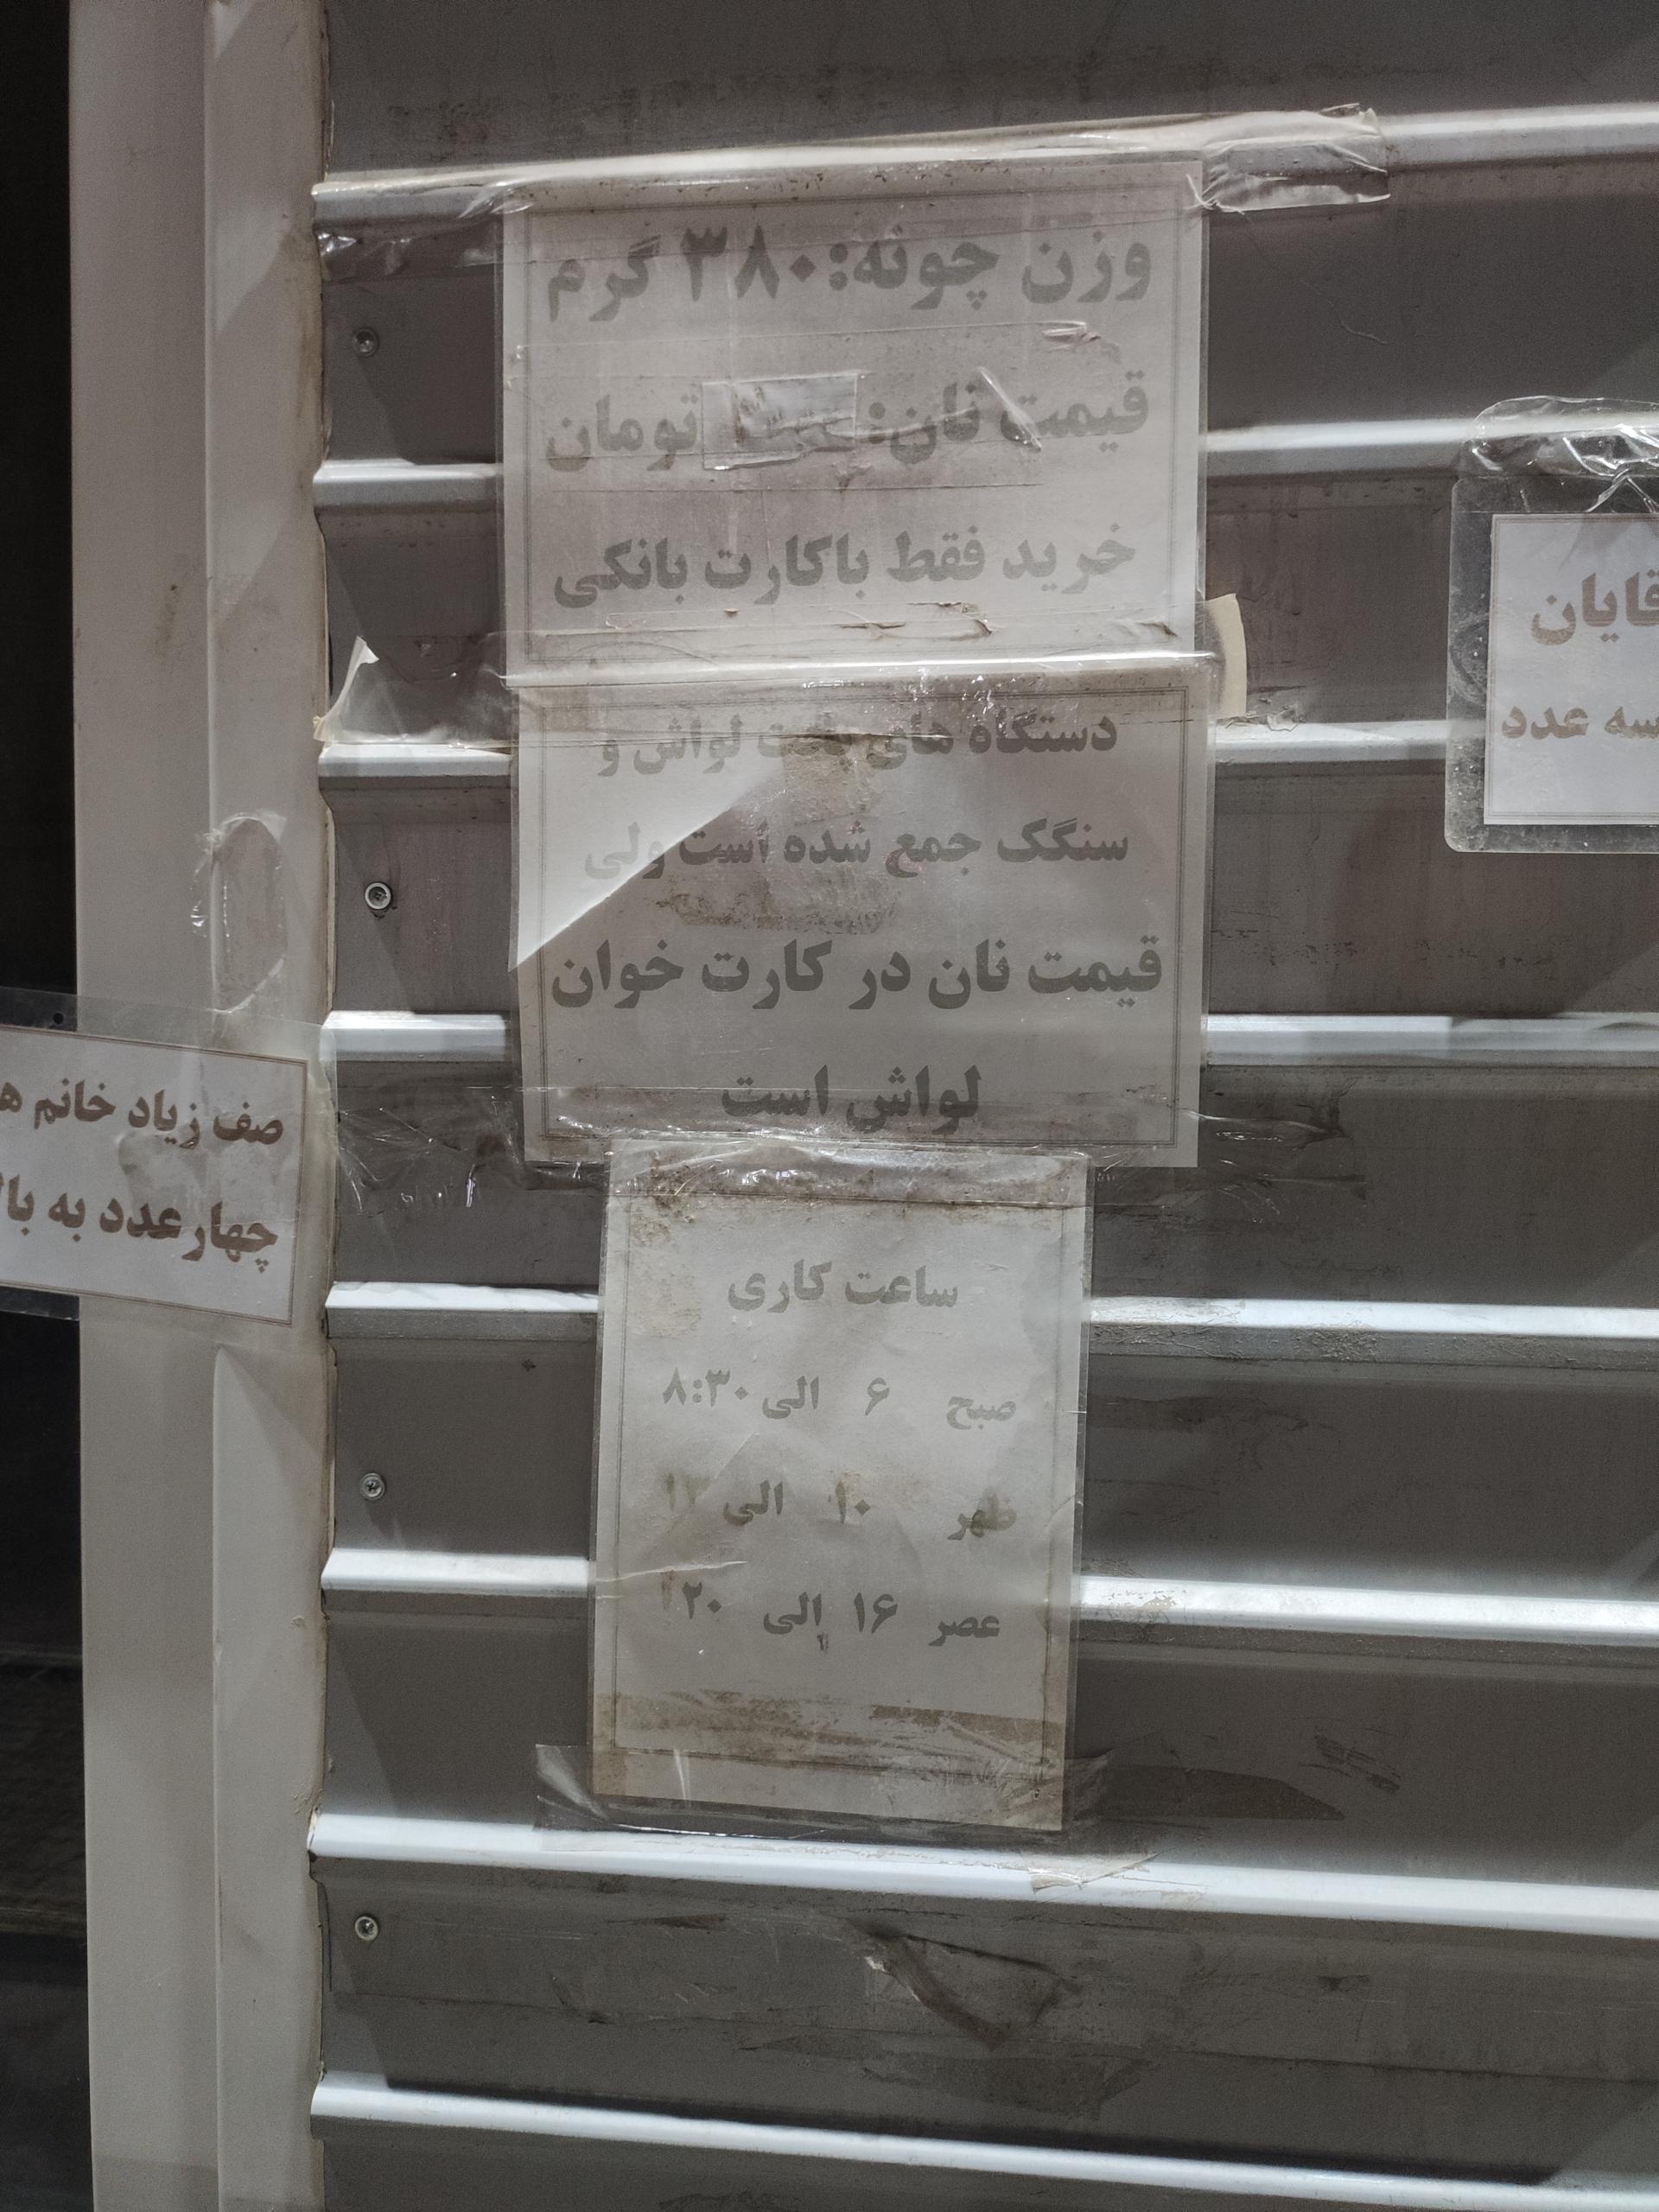 وزن چونه: ۳۸۰ گرم
قیمت نان: تومان
خرید فقط باکارت بانکی
دستگاه های پخت لواش و
سنگک جمع شده است ولی
قیمت نان در کارت خوان
لواش است
ساعت کاری
صبح ۶ الی ۸:۳۰
ظهر ۱۰ الی ۱۳
عصر ۱۶ الی ۲۰
قایان
سه عدد
صف زیاد خانم ه
چهارعدد به بال